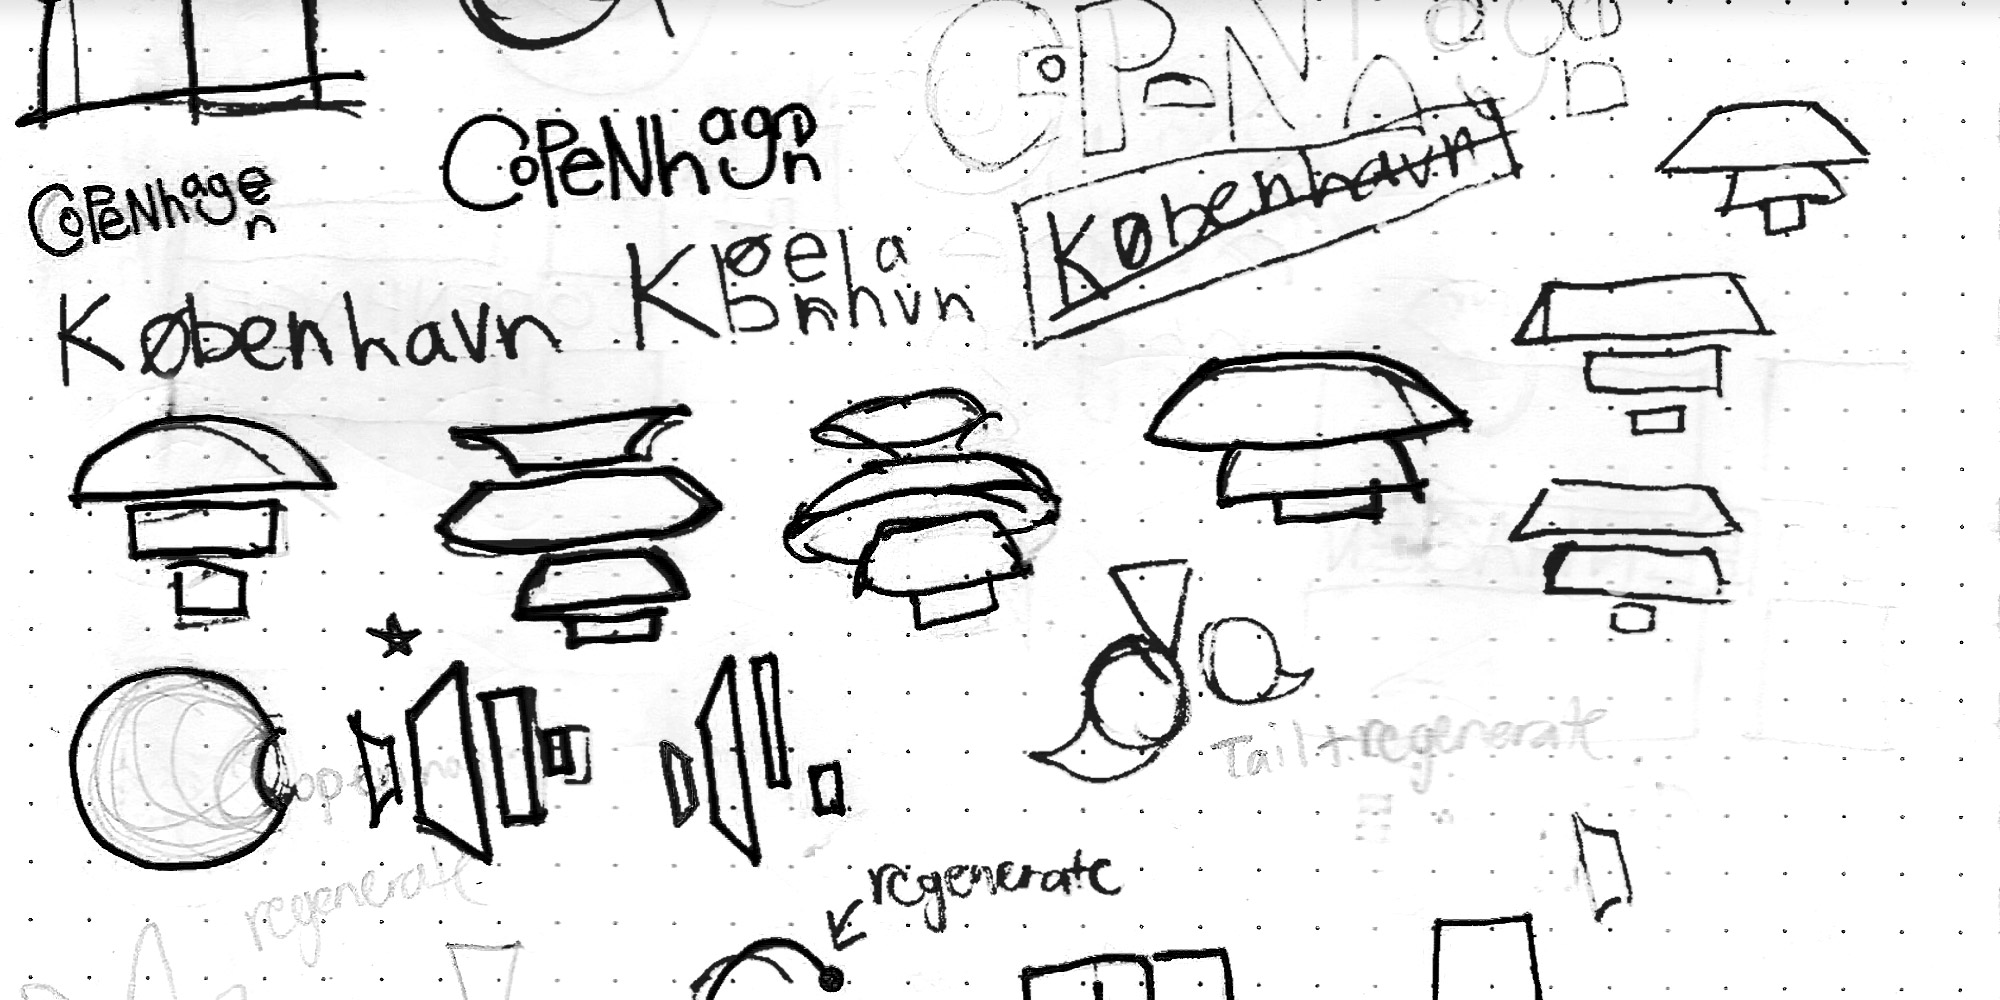 COPENhagen
COPeNhagen
COPeNhagen
København
København
København
Tail + regenerate
regenerate
regenerate